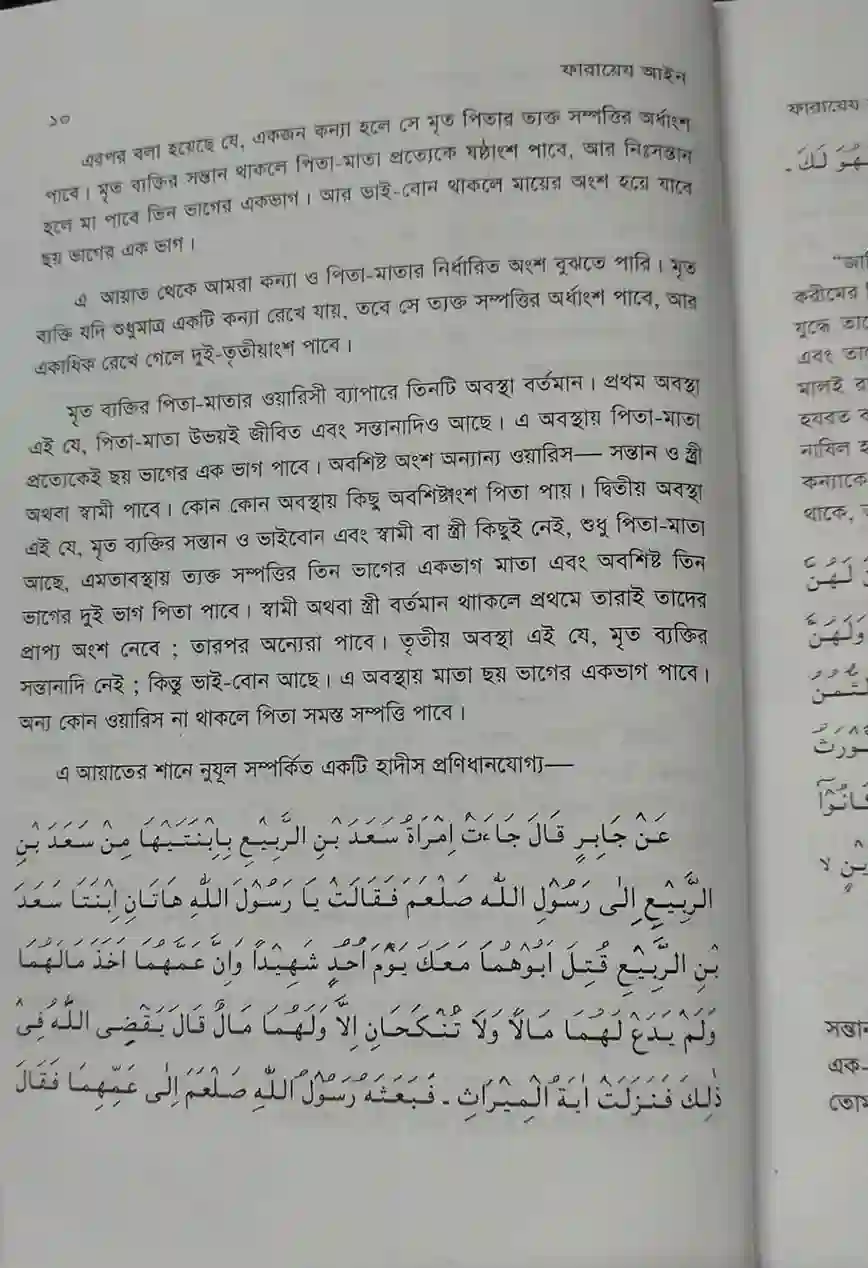 ফারায়েয আইন
১০
এরপর বলা হয়েছে যে, একজন কন্যা হলে সে মৃত পিতার ত্যক্ত সম্পত্তির অর্ধাংশ
পাবে। মৃত ব্যক্তির সন্তান থাকলে পিতা-মাতা প্রত্যেকে ষষ্ঠাংশ পাবে, আর নিঃসন্তান
হলে মা পাবে তিন ভাগের একভাগ। আর ভাই-বোন থাকলে মায়ের অংশ হয়ে যাবে
ছয় ভাগের এক ভাগ।
এ আয়াত থেকে আমরা কন্যা ও পিতা-মাতার নির্ধারিত অংশ বুঝতে পারি। মৃত
ব্যক্তি যদি শুধুমাত্র একটি কন্যা রেখে যায়, তবে সে ত্যক্ত সম্পত্তির অর্ধাংশ পাবে, আর
একাধিক রেখে গেলে দুই-তৃতীয়াংশ পাবে।
মৃত ব্যক্তির পিতা-মাতার ওয়ারিসী ব্যাপারে তিনটি অবস্থা বর্তমান। প্রথম অবস্থা
এই যে, পিতা-মাতা উভয়ই জীবিত এবং সন্তানাদিও আছে। এ অবস্থায় পিতা-মাতা
প্রত্যেকেই ছয় ভাগের এক ভাগ পাবে। অবশিষ্ট অংশ অন্যান্য ওয়ারিস— সন্তান ও স্ত্রী
অথবা স্বামী পাবে। কোন কোন অবস্থায় কিছু অবশিষ্টাংশ পিতা পায়। দ্বিতীয় অবস্থা
এই যে, মৃত ব্যক্তির সন্তান ও ভাইবোন এবং স্বামী বা স্ত্রী কিছুই নেই, শুধু পিতা-মাতা
আছে, এমতাবস্থায় ত্যক্ত সম্পত্তির তিন ভাগের একভাগ মাতা এবং অবশিষ্ট তিন
ভাগের দুই ভাগ পিতা পাবে। স্বামী অথবা স্ত্রী বর্তমান থাাকলে প্রথমে তারাই তাদের
প্রাপ্য অংশ নেবে ; তারপর অন্যেরা পাবে। তৃতীয় অবস্থা এই যে, মৃত ব্যক্তির
সন্তানাদি নেই ; কিন্তু ভাই-বোন আছে। এ অবস্থায় মাতা ছয় ভাগের একভাগ পাবে।
অন্য কোন ওয়ারিস না থাকলে পিতা সমস্ত সম্পত্তি পাবে।
এ আয়াতের শানে নুযূল সম্পর্কিত একটি হাদীস প্রণিধানযোগ্য—
عَنْ جَابِرٍ قَالَ جَاءَتْ اِمْرَاَةُ سَعَدَ بْنِ الرَّبِيْعِ بِابْنَتَيْهَا مِنْ سَعَدَ بْنِ
الرَّبِيْعِ اِلٰى رَسُوْلِ اللّٰه صَلْعَمْ فَقَالَتْ يَا رَسُوْلَ اللّٰهِ هَاتَانِ اِبْنَتَا سَعَدَ
بْنِ الرَّبِيْعِ قُتِلَ اَبُوْهُمَا مَعَكَ يَوْمَ اُحُدٍ شَهِيْدًا وَاِنَّ عَمَّهُمَا اَخَذَ مَالَهُمَا
وَلَمْ يَدَعْ لَهُمَا مَالًا وَلَا تُنْكَحَانِ اِلَّا وَلَهُمَا مَالٌ قَالَ يَقْضِى اللّٰهُ فِىْ
ذٰلِكَ فَنَزَلَتْ اٰيَةُ الْمِيْرَاثِ ـ فَبَعَثَهٗ رَسُوْلُ اللّٰهِ صَلْعَمْ اِلٰى عَمِّهِمَا فَقَالَ
ফারায়েয
فَهُوَ لَكَ ـ
করীমের
যুদ্ধে
এবং
মালই
হযরত
নাযিল
কন্যাকে
থাকে,
এক-